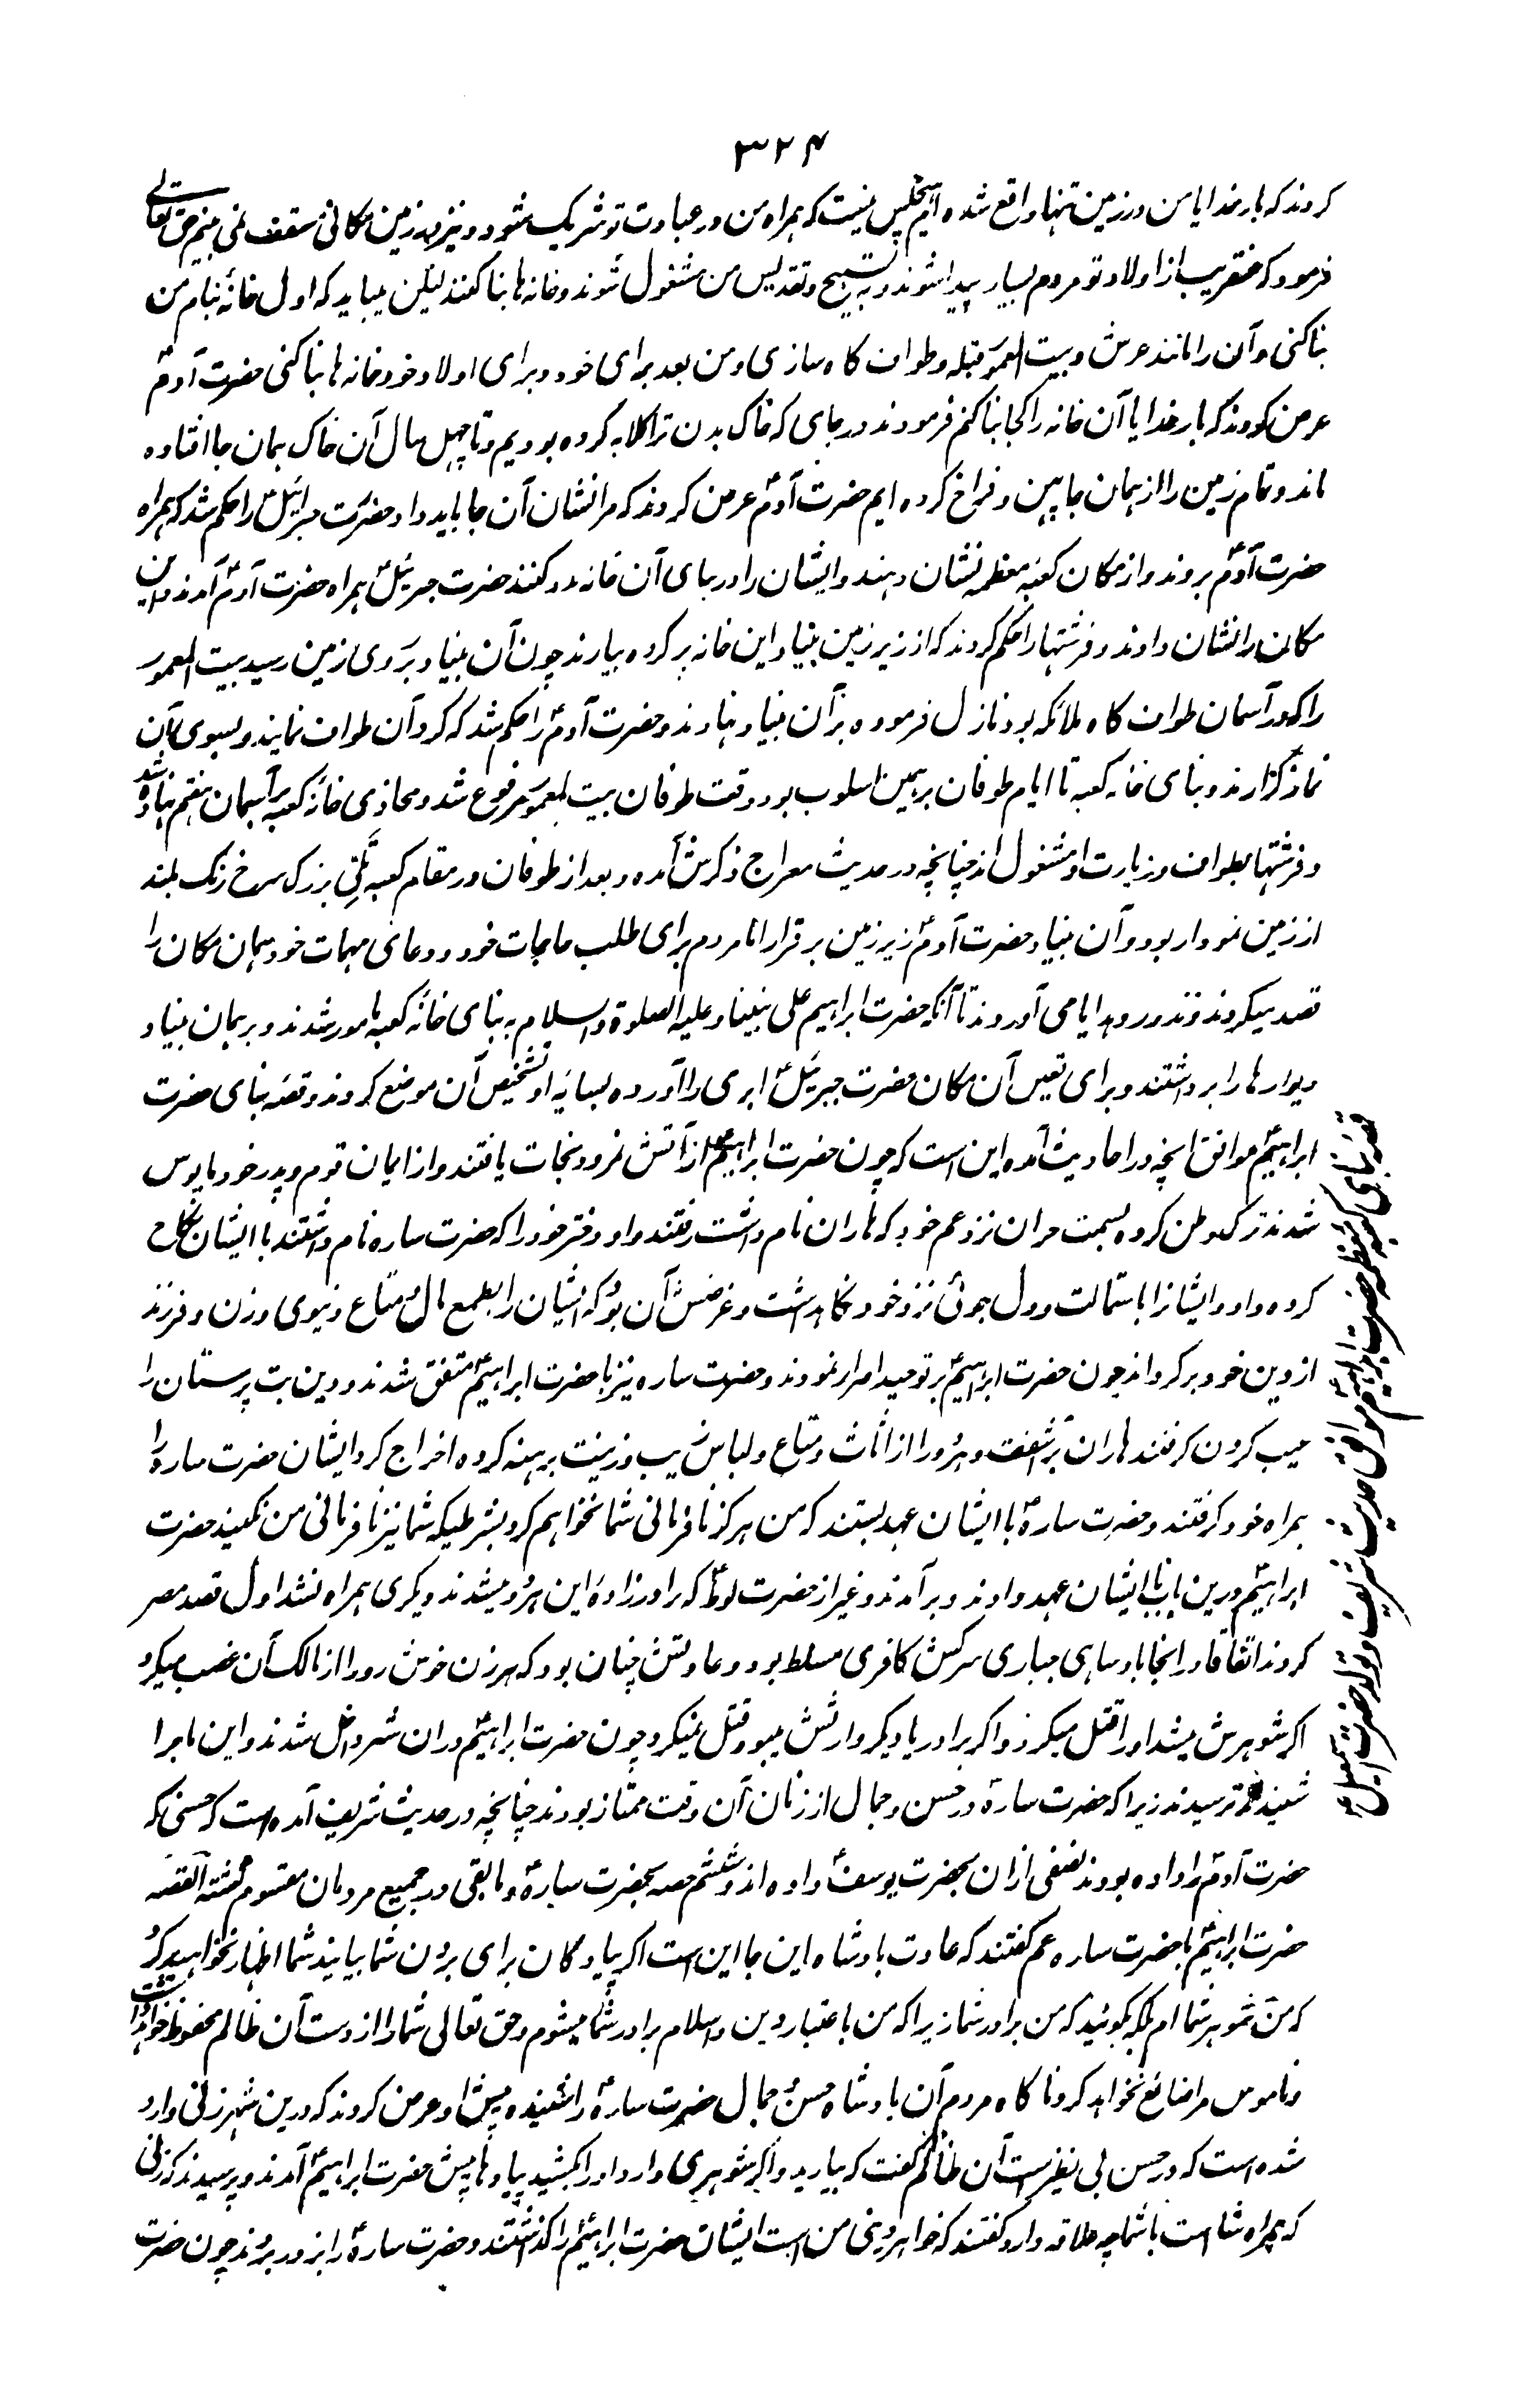 ۳۲۴
کردند که بار خدایا من در زمین تنها واقع شده ام هیچکس نیست که همراه من در عبادت تو شریک شود و نیز در زمین مکانی مسقف نمی بینم حق تعالی
فرمود که عنقریب از اولاد تو مردم بسیار پیدا شوند و به تسبیح و تقدیس من مشغول شوند و خانه ها بنا کنند لیکن میباید که اول خانه بنام من
بنا کنی و آن را مانند عرش و بیت المعمور قبله و طواف گاه سازی و من بعد برای خود و برای اولاد خود خانه ها بنا کنی حضرت آدمؑ
عرض کردند که بار خدایا آن خانه را کجا بنا کنم فرمودند در جای که خاک بدن ترا کلابه کرده بودیم و تا چهل سال آن خاک بمان جا افتاده
ماند و تمام زمین را از همان جا پهن و فراخ کرده ایم حضرت آدمؑ عرض کردند که مرا نشان آن جا باید داد حضرت جبرائیلؑ را حکم شد که همراه
حضرت آدمؑ بروند و از مکان کعبه معظمه نشان دهند و ایشان را در بنای آن خانه مدد کنند حضرت جبرئیلؑ همراه حضرت آدمؑ آمدند و این
مکان را نشان دادند و فرشتها را حکم کردند که از زیر زمین بنیاد این خانه پر کرده بیارند چون آن بنیاد بروی زمین رسید بیت المعمور
را که در آسمان طواف گاه ملائکه بود نازل فرموده بر آن بنیاد نهادند و حضرت آدمؑ را حکم شد که گرد آن طواف نمایند و بسوی آن
نماز گزارند و بنای خانه کعبه تا ایام طوفان بر همین اسلوب بود وقت طوفان بیت المعمور مرفوع شد و محاذی خانه کعبه بر آسمان هفتم نهاده شد
و فرشتها بطواف و زیارت او مشغول اند چنانچه در حدیث معراج ذکرش آمده و بعد از طوفان در مقام کعبه تلّی بزرگ سرخ رنگ بلند
از زمین نمودار بود و آن بنیاد حضرت آدمؑ زیر زمین برقرار اما مردم برای طلب حاجات خود و دعای مهمات خود همان مکان را
قصد میکردند و نذور و هدایا می آوردند تا آنکه حضرت ابراهیم علی نبینا و علیه الصلوة والسلام به بنای خانه کعبه مامور شدند و بر همان بنیاد
دیوارها را برداشتند و برای تعیین آن مکان حضرت جبرئیلؑ ابری را آورده بسایه او تشخیص آن موضع کردند و قصه بنای حضرت
ابراهیمؑ موافق آنچه در احادیث آمده این است که چون حضرت ابراهیمؑ از آتش نمرود نجات یافتند و از ایمان قوم و پدر خود مایوس
شدند ترک وطن کرده بسمت حران نزد عم خود که هاران نام داشت رفتند و او دختر خود را که حضرت ساره نام داشتند با ایشان نکاح
کرده داد و ایشانرا باستمالت و دل جوئی نزد خود نگاهداشت و غرضش آن بود که ایشان را بطمع مال و متاع دنیوی و زن و فرزند
از دین خود برگرداند چون حضرت ابراهیمؑ بر توحید اصرار نمودند و حضرت ساره نیز با حضرت ابراهیمؑ متفق شدند و دین بت پرستان را
عیب کردن گرفتند هاران برآشفت و هر دو را از اثاث و متاع و لباس زیب و زینت برهنه کرده اخراج کرد ایشان حضرت ساره را
همراه خود گرفتند و حضرت سارهؑ با ایشان عهد بستند که من هرگز نافرمانی شما نخواهم کرد بشرطیکه شما نیز نافرمانی من نکنید حضرت
ابراهیمؑ درین باب با ایشان عهد دادند و برآمدند و غیر از حضرت لوطؑ که برادرزاده این هر دو میشدند دیگری همراه نشد اول قصد مصر
کردند اتفاقا در انجا بادشاهی جباری سرکش کافری مسلط بود و عادتش چنان بود که هر زن خوش رو را از مالک آن غصب میکرد
اگر شوهرش میشد او را قتل میکرد و اگر برادر یا دیگر وارثش میبود قتل نمیکرد چون حضرت ابراهیمؑ دران شهر داخل شدند و این ماجرا
شنیدند ترسیدند زیرا که حضرت سارهؑ در حسن و جمال از زنان آن وقت ممتاز بودند چنانچه در حدیث شریف آمده است که حسنی که
حضرت آدمؑ را داده بودند نصفی ازان بحضرت یوسفؑ داده اند و ششم حصه بحضرت سارهؑ و مابقی در جمیع مردمان مقسوم گشته القصه
حضرت ابراهیمؑ با حضرت ساره عم گفتند که عادت بادشاه این جا این است اگر پیادگان برای بردن شما بیایند شما اظهار نخواهید کرد
که من شوهر شما ام بلکه بگوئید که من برادر شما زیرا که من باعتبار دین و اسلام برادر شما میشوم و حق تعالی شما را از دست آن ظالم محفوظ خواهد داشت
و ناموس مرا ضائع نخواهد کرد ناگاه مردم آن بادشاه حسن و جمال حضرت سارهؑ را شنیده پیش او عرض کردند که درین شهر زنی وارد
شده است که در حسن بی نظیرست آن ظالم گفت که بیارید و اگر شوهری دارد او را بکشید پیادها پیش حضرت ابراهیمؑ آمدند و پرسیدند که زنی
که همراه شما است باشما چه علاقه دارد گفتند که خواهر دینی من است ایشان حضرت ابراهیمؑ را گذاشتند و حضرت سارهؑ را بزور بردند چون حضرت
قصه بنای کعبه معظمه حضرت ابراهیمؑ موافق حدیث شریف و تولد حضرت اسمعیلؑ